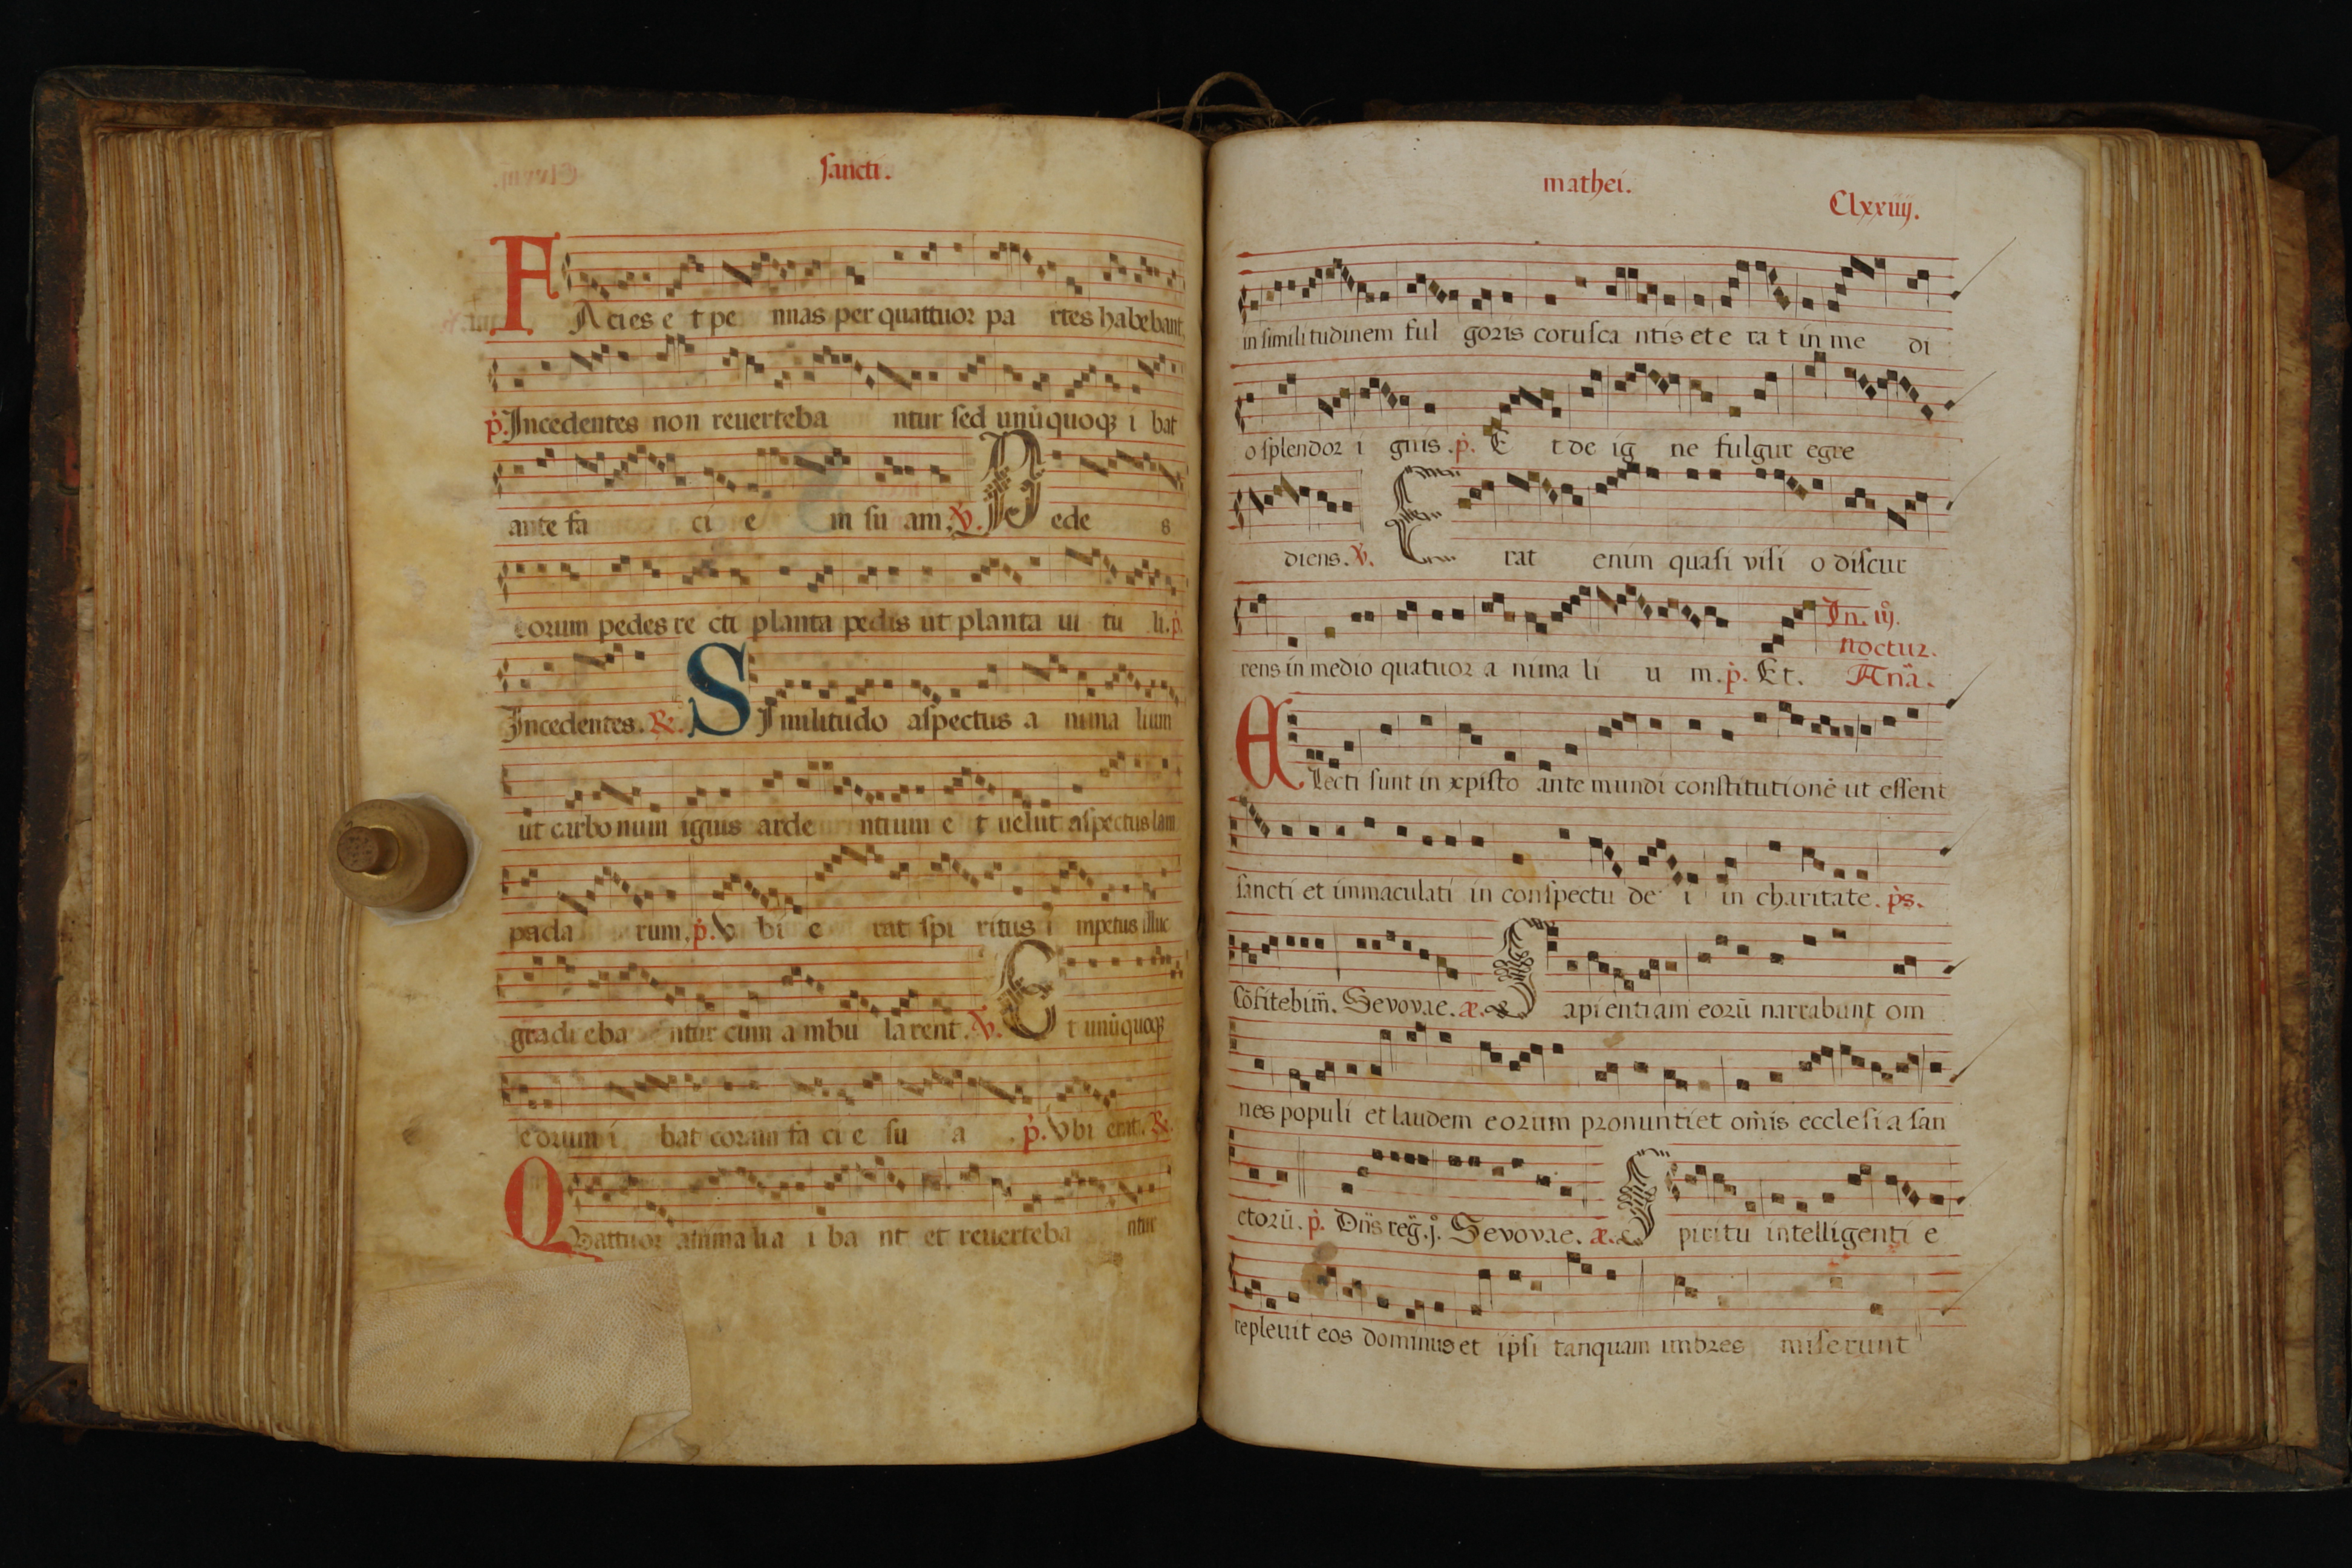 sancti.
FAcies e t pe nnas per quattuor pa rtes habebant
ṗ. Incedentes non reuerteba ntur sed unūquoqꝫ i bat
ante fa ci e m su am. ℣. Pede s
eorum pedes re cti planta pedis ut planta ui tu li. ṗ.
Incedentes. ℟. SImilitudo aspectus a nima lium
ut carbonum ignis arde ntium e t uelut aspectus lam
pada rum. ṗ. V bi e rat spi ritus i mpetus illuc
gradi eba ntur cum a mbu larent. ℣. Et unūquoqꝫ
eorum i bat coram fa ci e su a . ṗ. Vbi erat. ℟.
QVattuor anima lia i ba nt et reuerteba ntur
mathei.
Clxxiiij.
in simili tudinem ful goris corusca ntis et e ra t in me di
o splendor i gnis. ṗ. E t de ig ne fulgur egre
diens. ℣. Erat enim quasi visi o discur
rens in medio quatuor a nima li u m. ṗ. Et. In. iij. noctur. Anā.
ELecti sunt in xpisto ante mundi constitutionē ut essent
sancti et immaculati in conspectu de i in charitate. ps.
Cōfitebim̄. Sevovae. æ. Sapientiam eorū narrabunt om
nes populi et laudem eorum pronuntiet om̄is ecclesi a san
ctorū. ṗ. Dn̄s reg̃. j. Sevovae. æ. Spiritu intelligenti e
repleuit eos dominus et ip̄si tanquam imbres miserunt